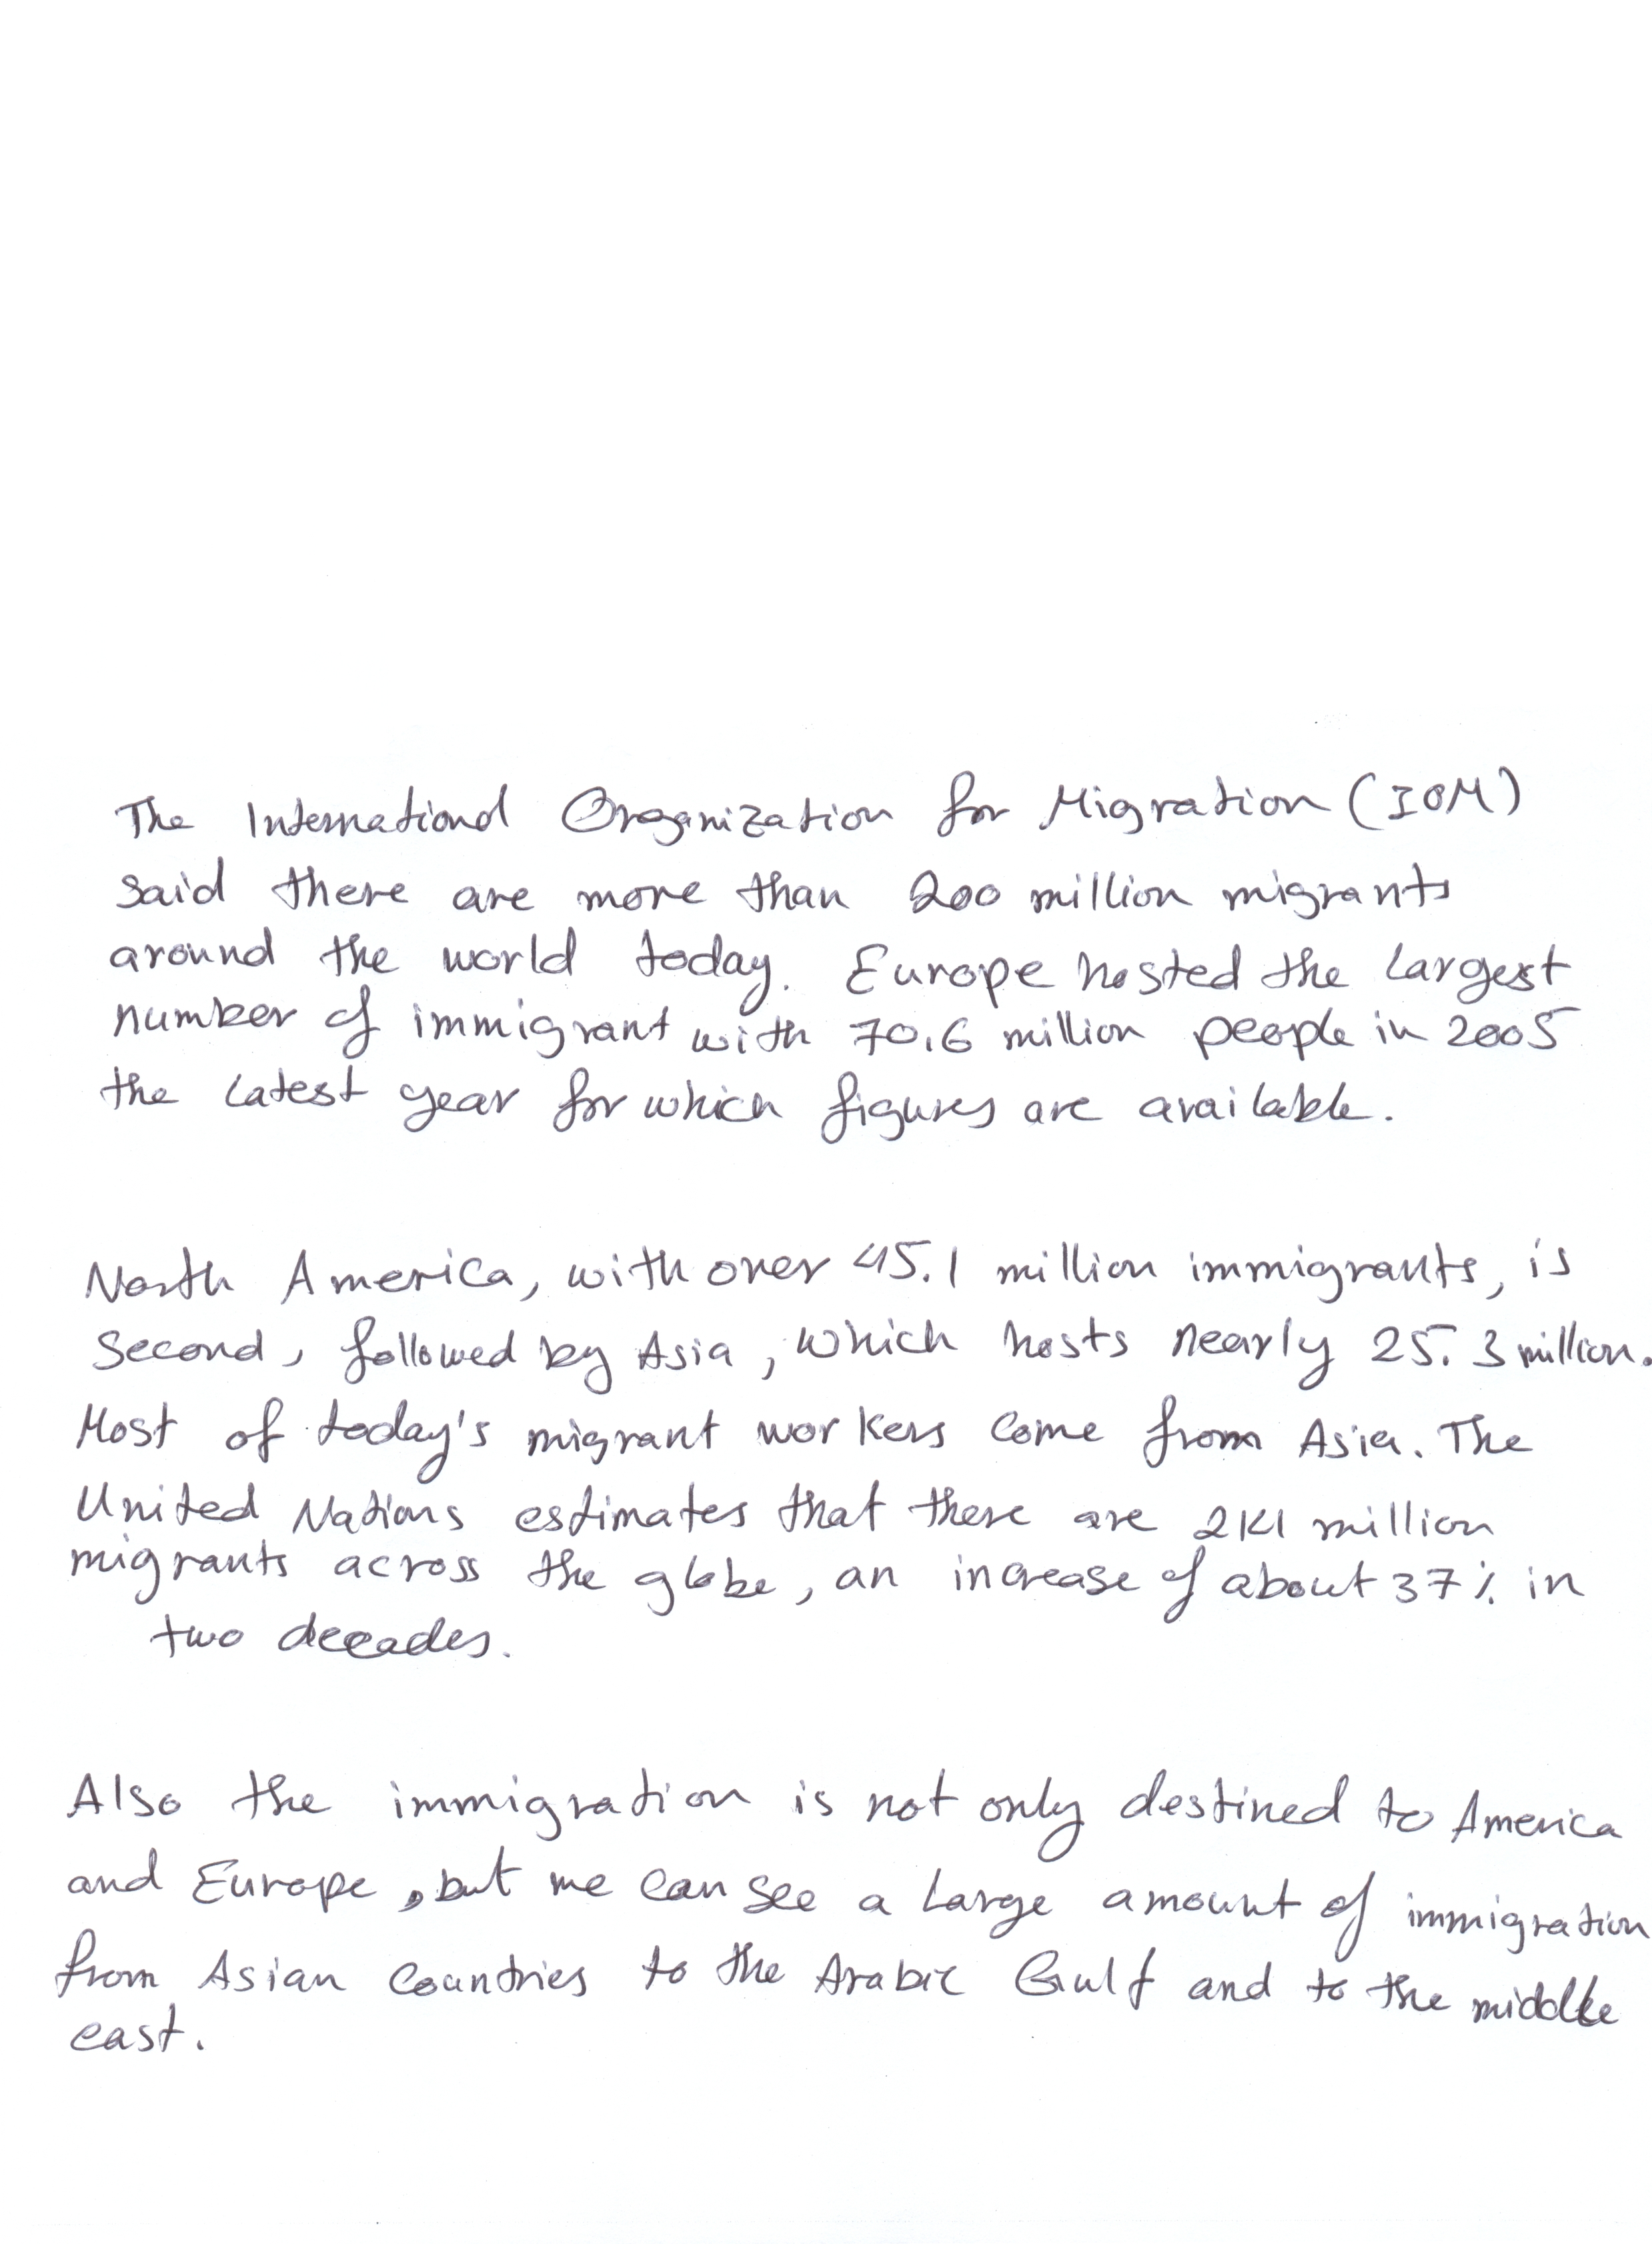 The International Organization for Migration (IOM)
said there are more than 200 million migrants
around the world today. Europe hosted the largest
number of immigrant with 70.6 million people in 2005
the latest year for which figures are available.
North America, with over 45.1 million immigrants, is
second, followed by Asia, which hosts nearly 25.3 million.
Most of today's migrant workers come from Asia. The
United Nations estimates that there are million
migrants across the globe, an increase of about 37% in
two decades.
Also the immigration is not only destined to America
and Europe, but we can see a large amount of immigration
from Asian countries to the Arabic Gulf and to the middle
east.